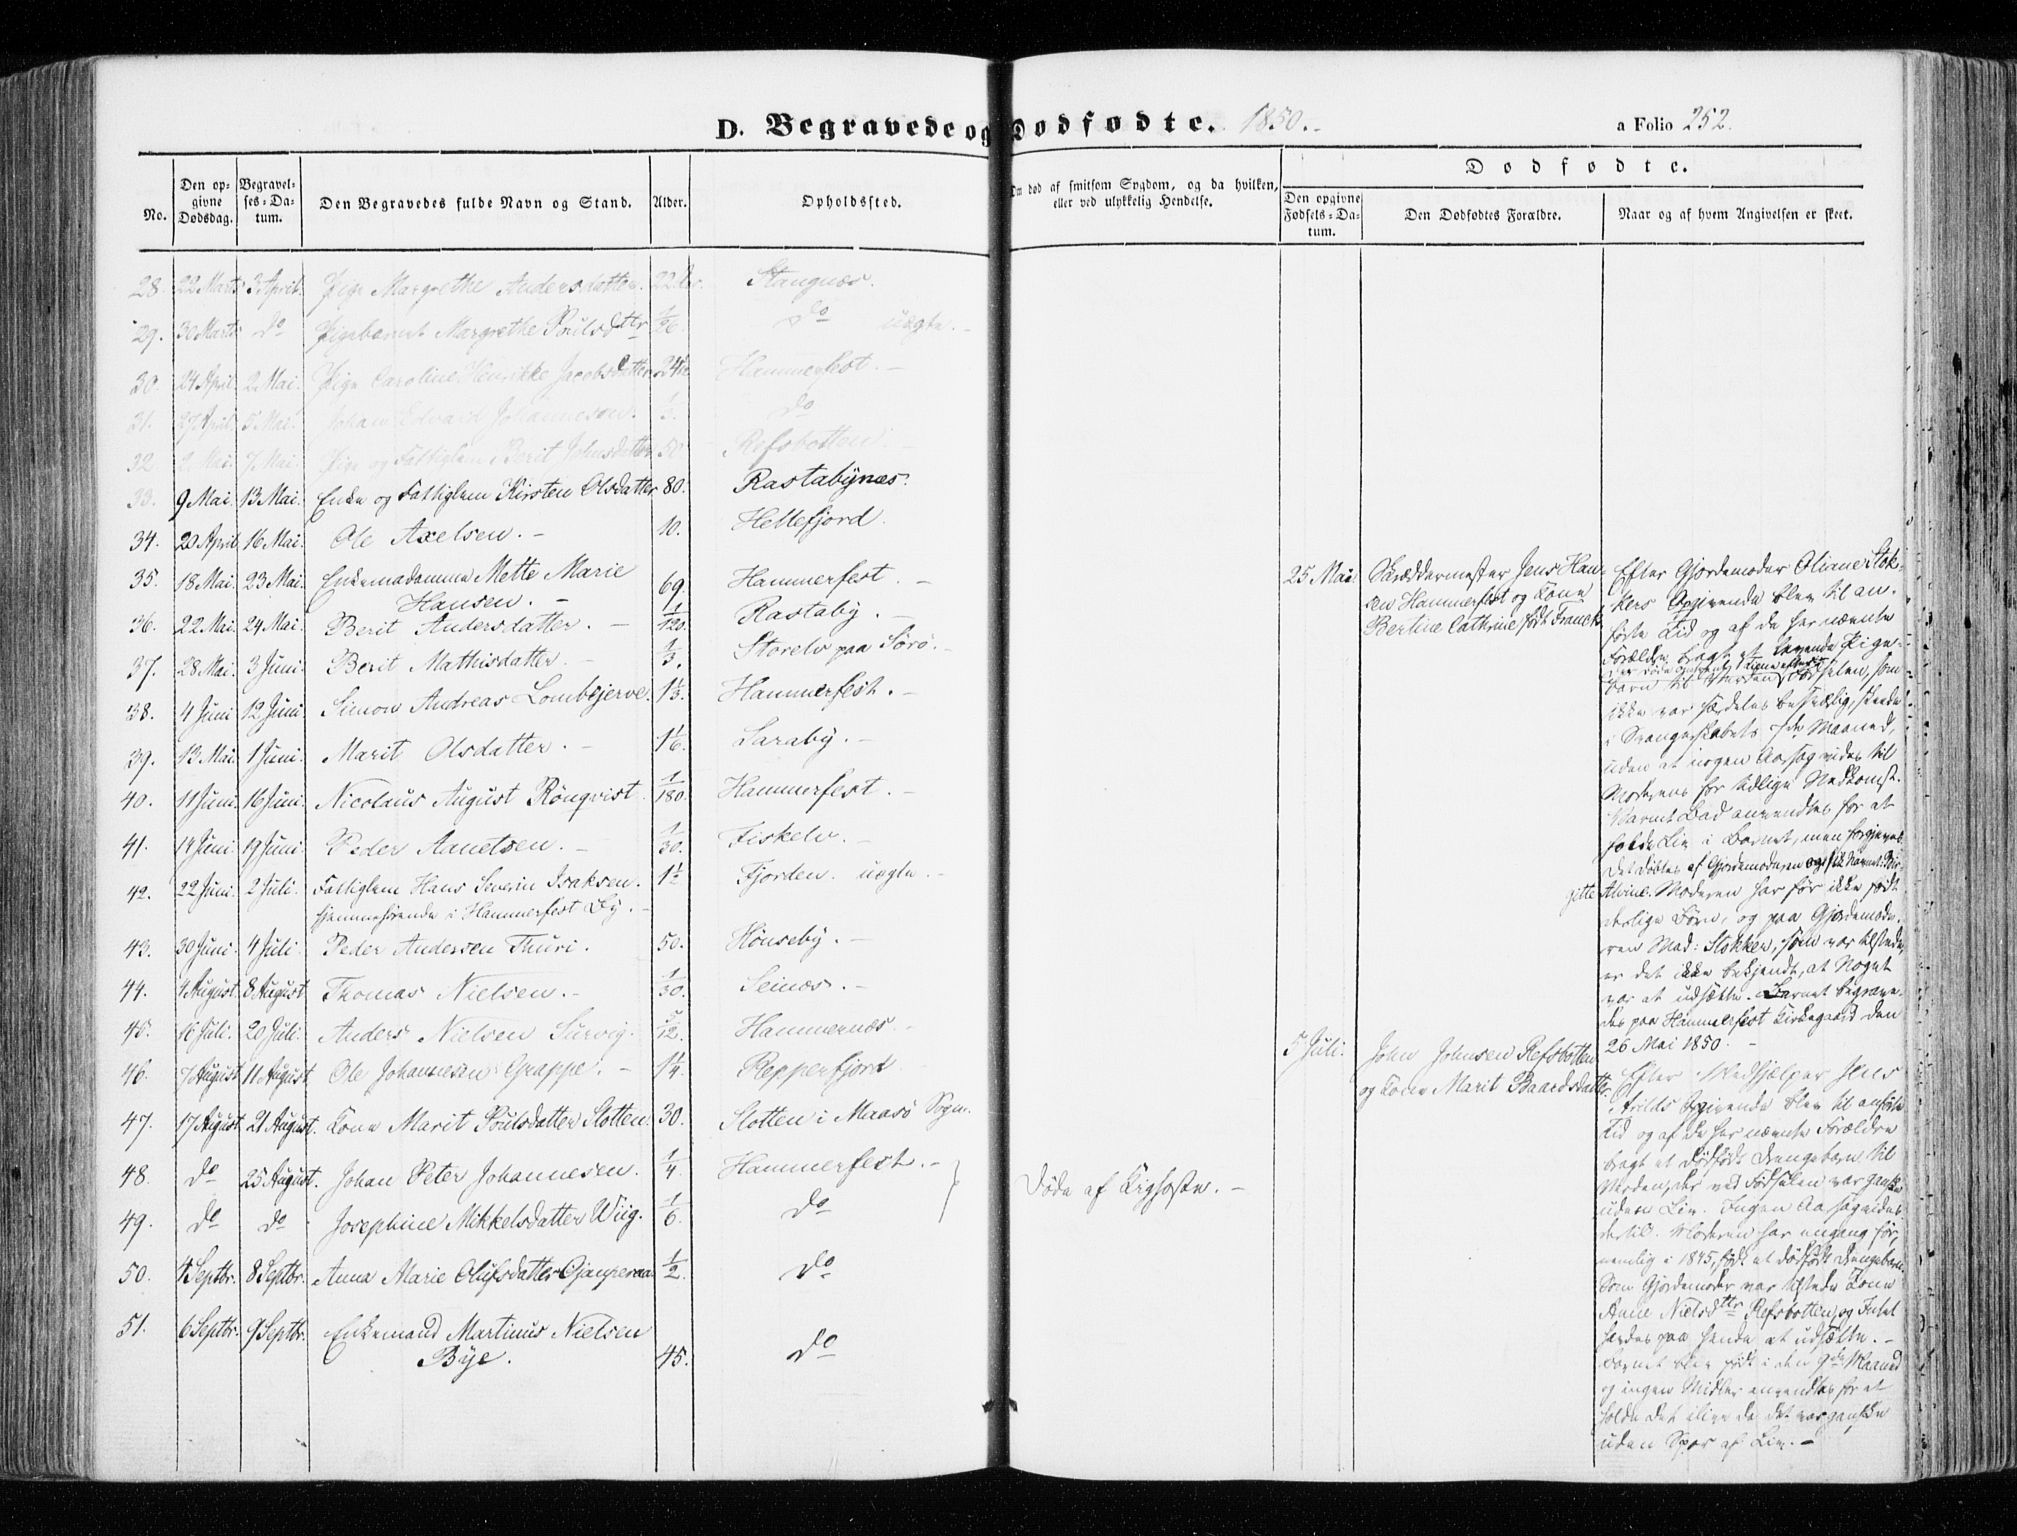 D. Begravede og Dødfødte. 1850.
a Folio 252.
No. Den opgivne Dødsdag. Begravelses-Datum. Den Begravedes fulde Navn og Stand. Alder. Opholdssted. Om død af smitsom Sygdom, og da hvilken, eller ved ulykkelig Hendelse.
Dødfødte.
Den opgivne Fødsels-Datum. Den Dødfødtes Forældre. Naar og af hvem Angivelsen er skeet.
28. 22 Marts 3 April. Pige Margrethe Andersdatter. 22 Stangnæs.
29. 30 Marts do Pigebarnet Margrethe Poulsdttr 1/26. do uægte.
30. 24 April 2 Mai. Pige Caroline Henrikke Jacobsdatter Hammerfest.
31. 27 April 5 Mai. Johan Edvard Johannesen. 1/3. do
32. 2 Mai. 7 Mai. Pige og Fattiglem Berit Johnsdatter 50 Refsbotten.
33. 9 Mai. 13 Mai. Enke og Fattiglem Kirsten Olsdatter 80. Rastabynæs.
34. 20 April 16 Mai. Ole Axelsen. 10. Hellefjord.
35. 18 Mai. 23 Mai. Enkemadamme Mette Marie
Hansen. 69. Hammerfest.
36. 22 Mai. 24 Mai. Berit Andersdatter. 1/120. Rastaby.
37. 28 Mai. 3 Juni. Berit Mathisdatter. 1/3. Storelv paa Sørø.
38. 4 Juni 12 Juni. Simon Andreas Lombjerve. 1 1/3. Hammerfest.
39. 13 Mai. 1 Juni. Marit Olsdatter. 1 1/6. Saraby.
40. 11 Juni. 16 Juni. Nicolaus August Rönqvist. 1/180. Hammerfest.
41. 14 Juni. 19 Juni. Peder Anetsen. 1/30. Fiskelv.
42. 22 Juni. 2 Juli. Fattiglem Hans Severin Isaksen. 1 1/2 Fjorden. uægte.
hjemmehørende i Hammerfest By.
43. 30 Juni. 4 Juli. Peder Andersen Thuri. 50. Hönseby.
44. 4 August. 8 August Thomas Nielsen. 1/30. Seinæs.
45. 16 Juli. 20 Juli. Anders Nielsen Survig. 5/12. Hammernæs.
46. 7 August 11 August Ole Johannesen Grappe. 1 1/4. Repperfjord
47. 17 August 21 August. Kone Marit Poulsdatter Slotten. 30. Slotten i Maasø Sogn.
48. do 25 August. Johan Peter Johannesen. 1/4. Hammerfest.
Døde af Kighoste.
49. do do Josephine Mikkelsdatter Wiig. 1/6. do
50. 4 Septbr. 8 Septbr. Anna Marie Olufsdatter 1/2. do
51. 6 Septbr. 9 Septbr. Enkemand Martinus Nielsen
Bye. 45. do
25 Mai. Skræddermester Jens Han-
sen Hammerfest og Kone
Bertine Cathrine født Franck.
Efter Gjordemoder Oliane Stok-
kers Opgivende blev til an-
førte Tid og af de her nævnte
Forældre bragt et levende Pige-
barn til Verden Fødselen, som
ikke var særdeles besværlig, skede
i Svangerskabets 7de Maaned,
uden at nogen Aarsag vides til
Moderens for tidlige Nedkomst.
Varmt Bad anvendtes for at
holde Liv i Barnet, men forgjeves.
Det døbtes af Gjordemoderen og fik Navnet: Bir-
gitte Alvine. Moderen har før ikke født
ulige Børn, og paa Gjordemode-
ren Mad: Stokken, som var tilstede,
er det ikke bekjendt, at Noget
var at udsætte. Barnet begrave-
des paa Hammerfest Kirkegaard den
26 Mai 1850.
5 Juli. John Johnsen Refsbotten
og Kone Marit Baardsdatter.
Efter Medhjelper Jens
Arilds Opgivende blev til anførte
Tid og af de her nævnte Forældre
bragt et dødfødt Drengebarn til
Verden, der ved Fødselen var ganske
uden Liv. Ingen Aarsag vides
dertil. Moderen har engang før,
nemlig i 1845, født et dødfødt Drengebarn.
Som Gjordemoder var tilstede Kone
Anne Nielsdttr Refsbotten, og Intet
havdes paa hende at udsætte.
Barnet blev født i den 9de Maaned
og ingen Midler anvendtes for at
holde det ilive da det var ganske
uden Spor af Liv.